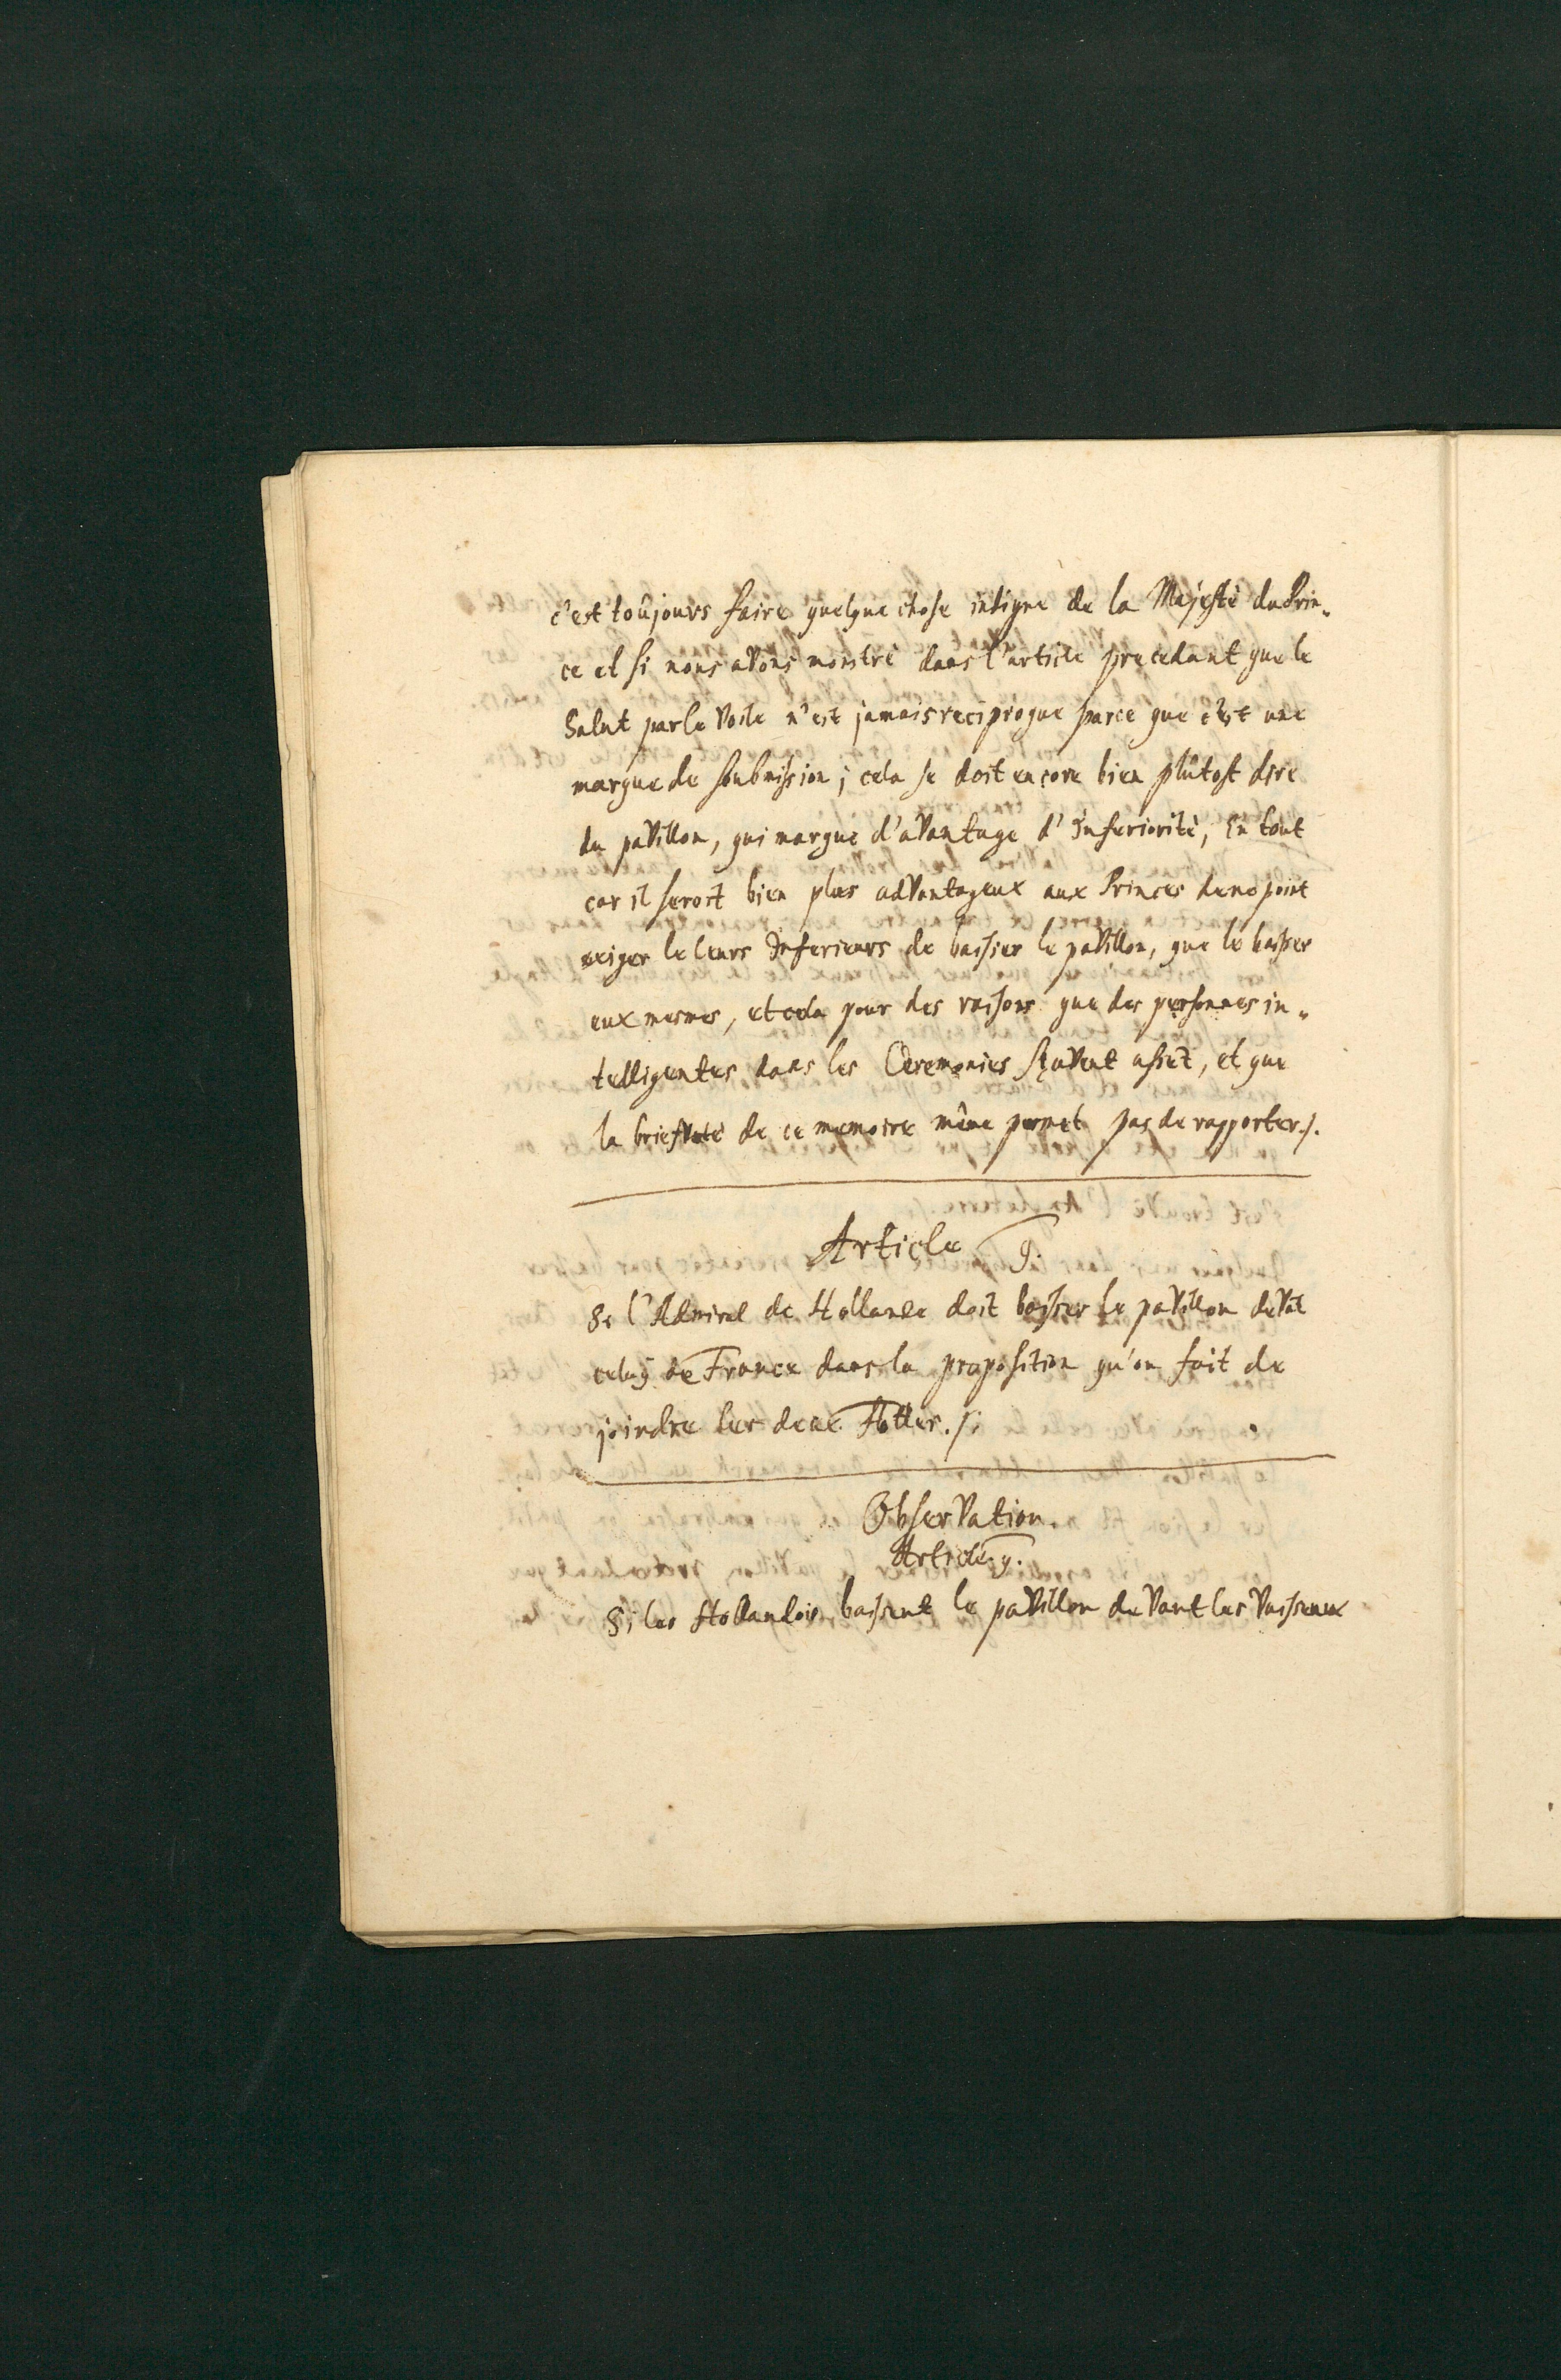 c'est toûjours faire quelque chose indigne de la Majesté du Prin„
ce et si nous avons monstré dans l'article precedant que le
Salut par la Voile n'est jamais reciproque parce que c'est une
marque de soubmission; cela se doit encore bien plûtost dire
du paVillon, qui marque d'aVantage d'Inferiorité, En tout
car il seroit bien plus adVantageux aux Princes de ne point
exiger le leurs Inferieurs de baisser le paVillon, que le baisser
eux mesmes, et cela pour des raisons que des personnes in„
telligentes dans les Ceremonies sçaVent assez, et que
la briefVeté de ce memoire même permet pas de rapporter./.
Article 9.
Si l'Admiral de Hollande doit baisser le paVillon deVat
celuy de France dans la proposition qu'on fait de
joindre les deux Flottes./.
ObserVation.
Article 9.
Si les Hollandois baissent le paVillon deVant les Vaisseaux